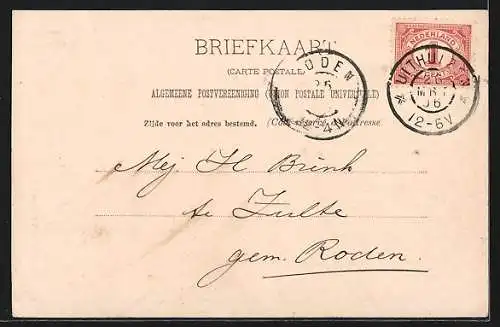 NEDERLAND
BRIEFKAART
(CARTE POSTALE)
ALGEMEENE POSTVEREENIGING (UNION POSTALE UNIVERSELLE)
Zijde voor het adres bestemd. (Côté réservé à l'adresse)
RODEN
UITHUIZEN
06
12-6V
Mej. H Brink
te Zulte
gem. Roden.